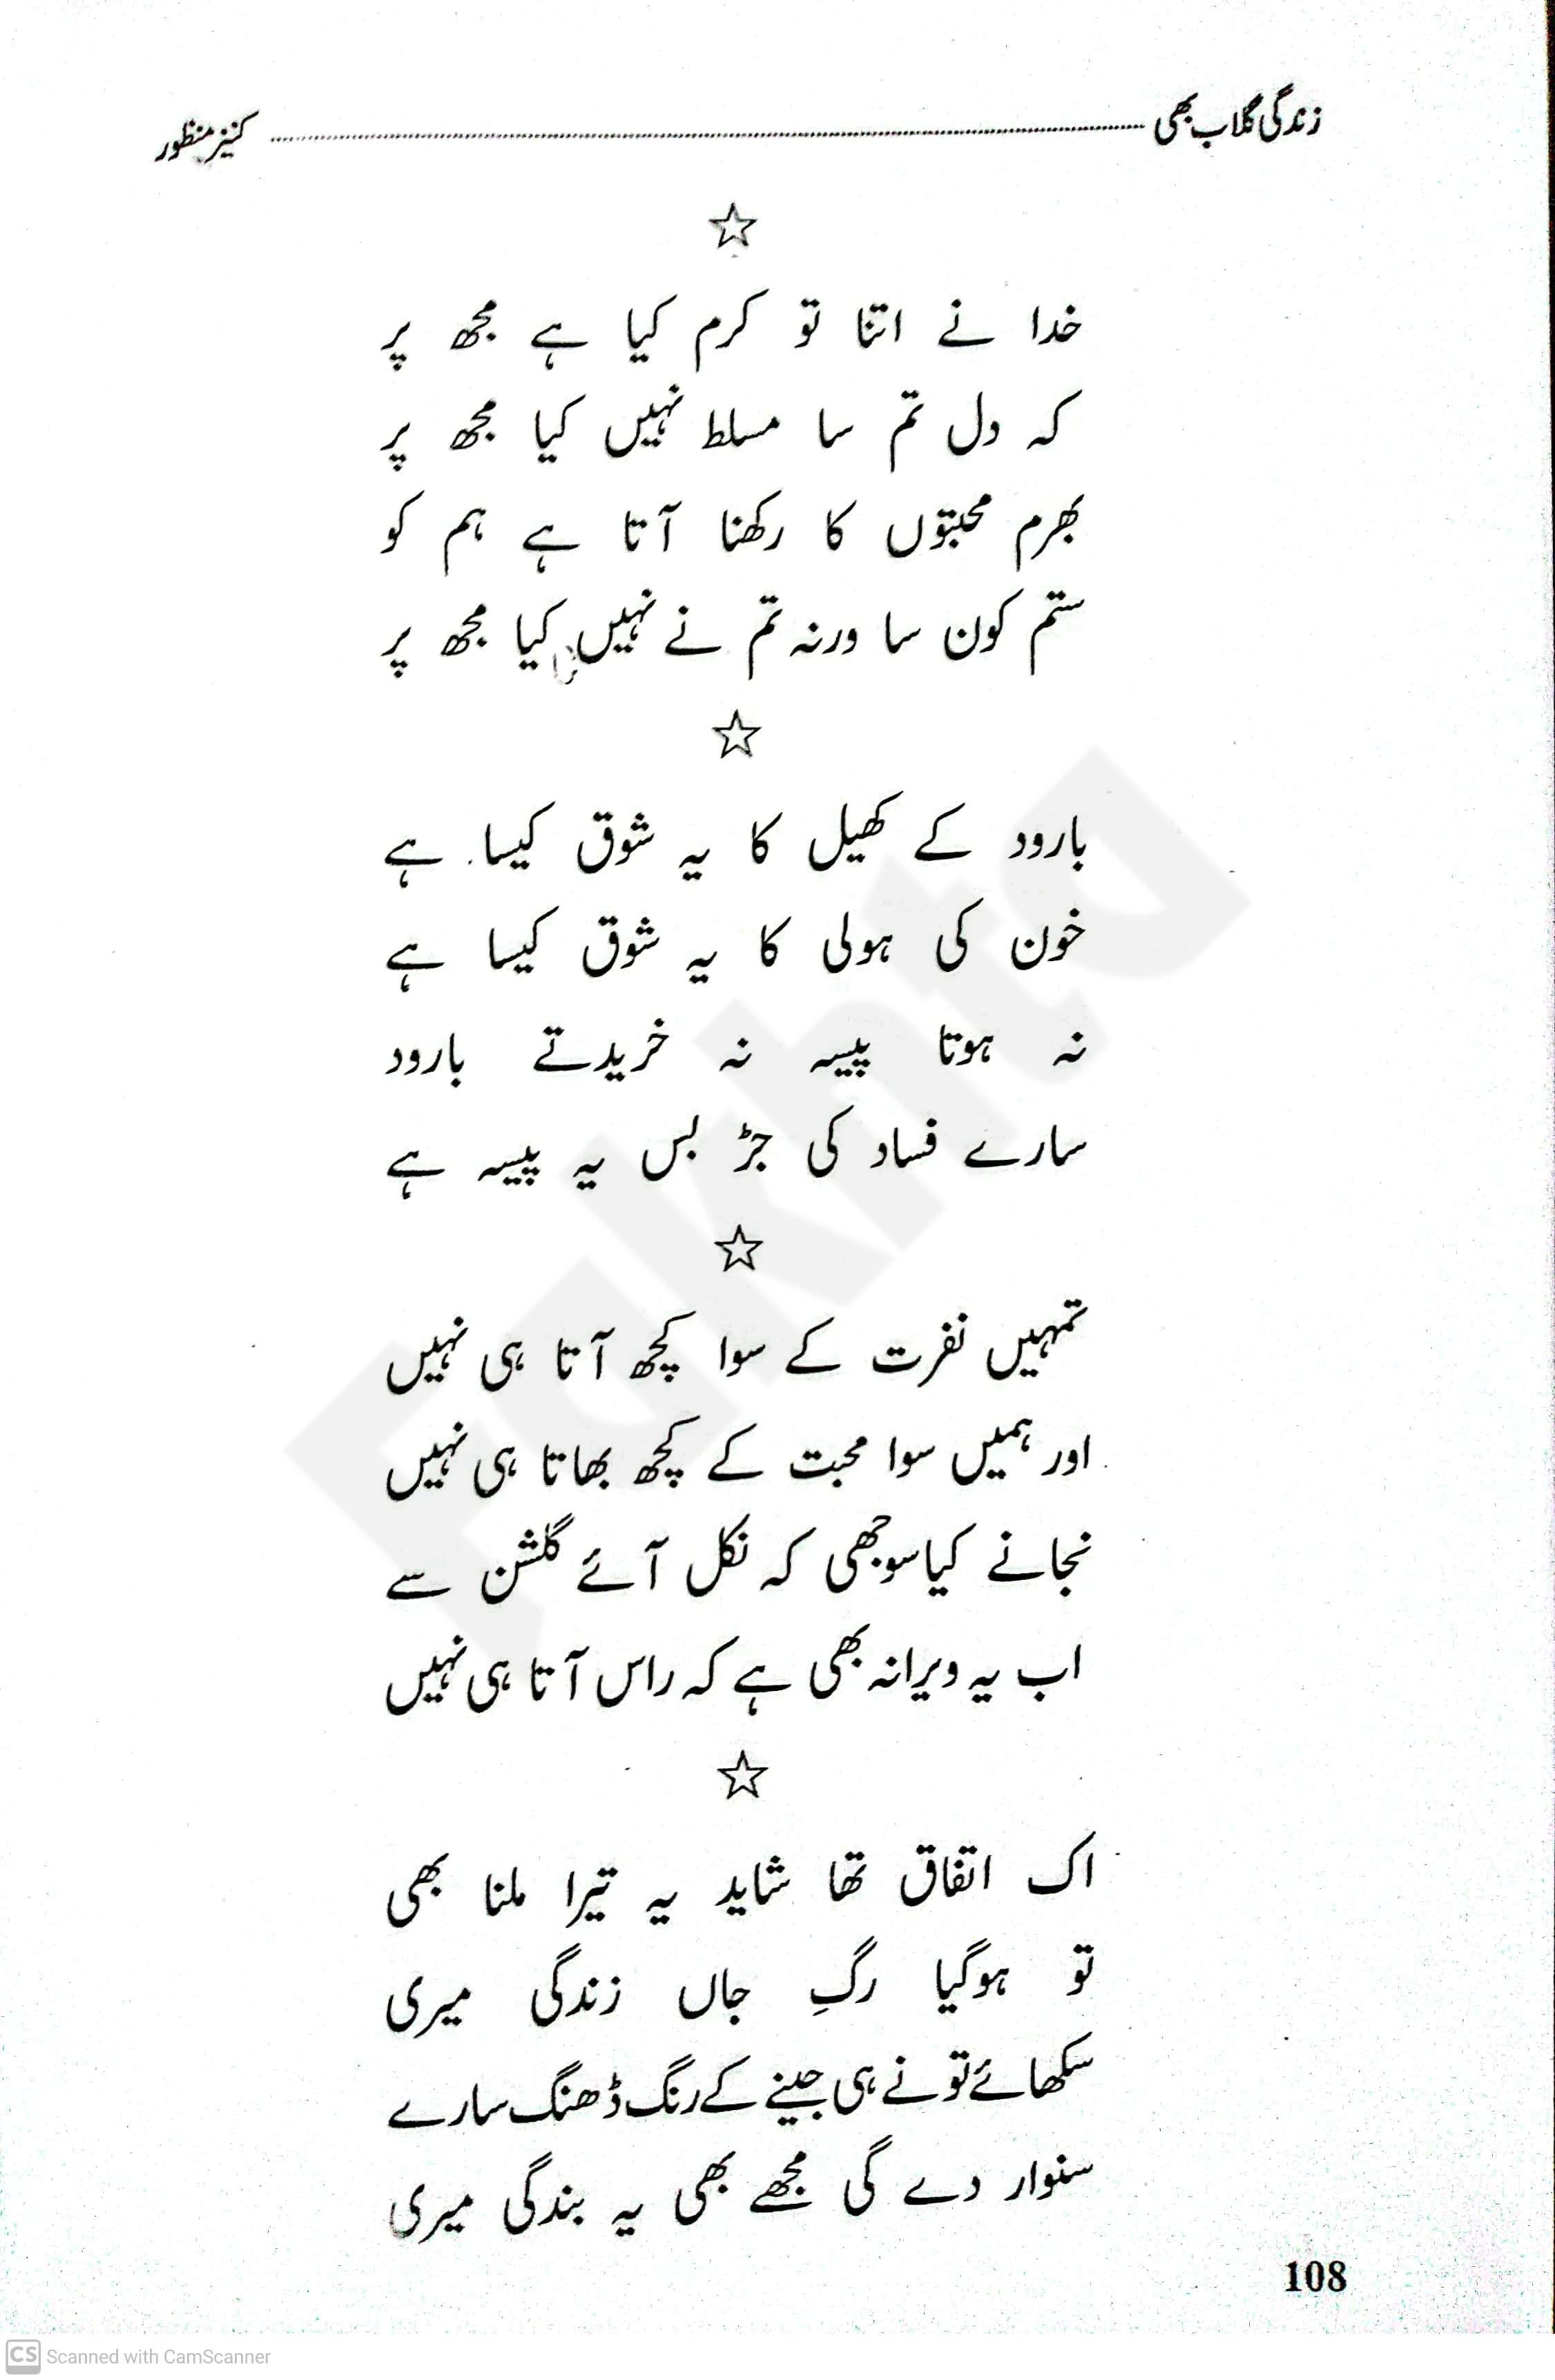 زندگی گلاب بھی ........ کنیز منظور
☆
خدا نے اتنا تو کرم کیا ہے مجھ پر
کہ دل تم سا مسلط نہیں کیا مجھ پر
بھرم محبتوں کا رکھنا آتا ہے ہم کو
ستم کون سا ورنہ تم نے نہیں کیا مجھ پر
☆
بارود کے کھیل کا یہ شوق کیسا ہے
خون کی ہولی کا یہ شوق کیسا ہے
نہ ہوتا پیسہ نہ خریدتے بارود
سارے فساد کی جڑ بس یہ پیسہ ہے
☆
تمہیں نفرت کے سوا کچھ آتا ہی نہیں
اور ہمیں سوا محبت کے کچھ بھاتا ہی نہیں
نجانے کیا سوجھی کہ نکل آئے گلشن سے
اب یہ ویرانہ بھی ہے کہ راس آتا ہی نہیں
☆
اک اتفاق تھا شاید یہ تیرا ملنا بھی
تو ہوگیا رگِ جاں زندگی میری
سکھائے تو نے ہی جینے کے رنگ ڈھنگ سارے
سنوار دے گی مجھے بھی یہ بندگی میری
108
Fakhta
CS Scanned with CamScanner